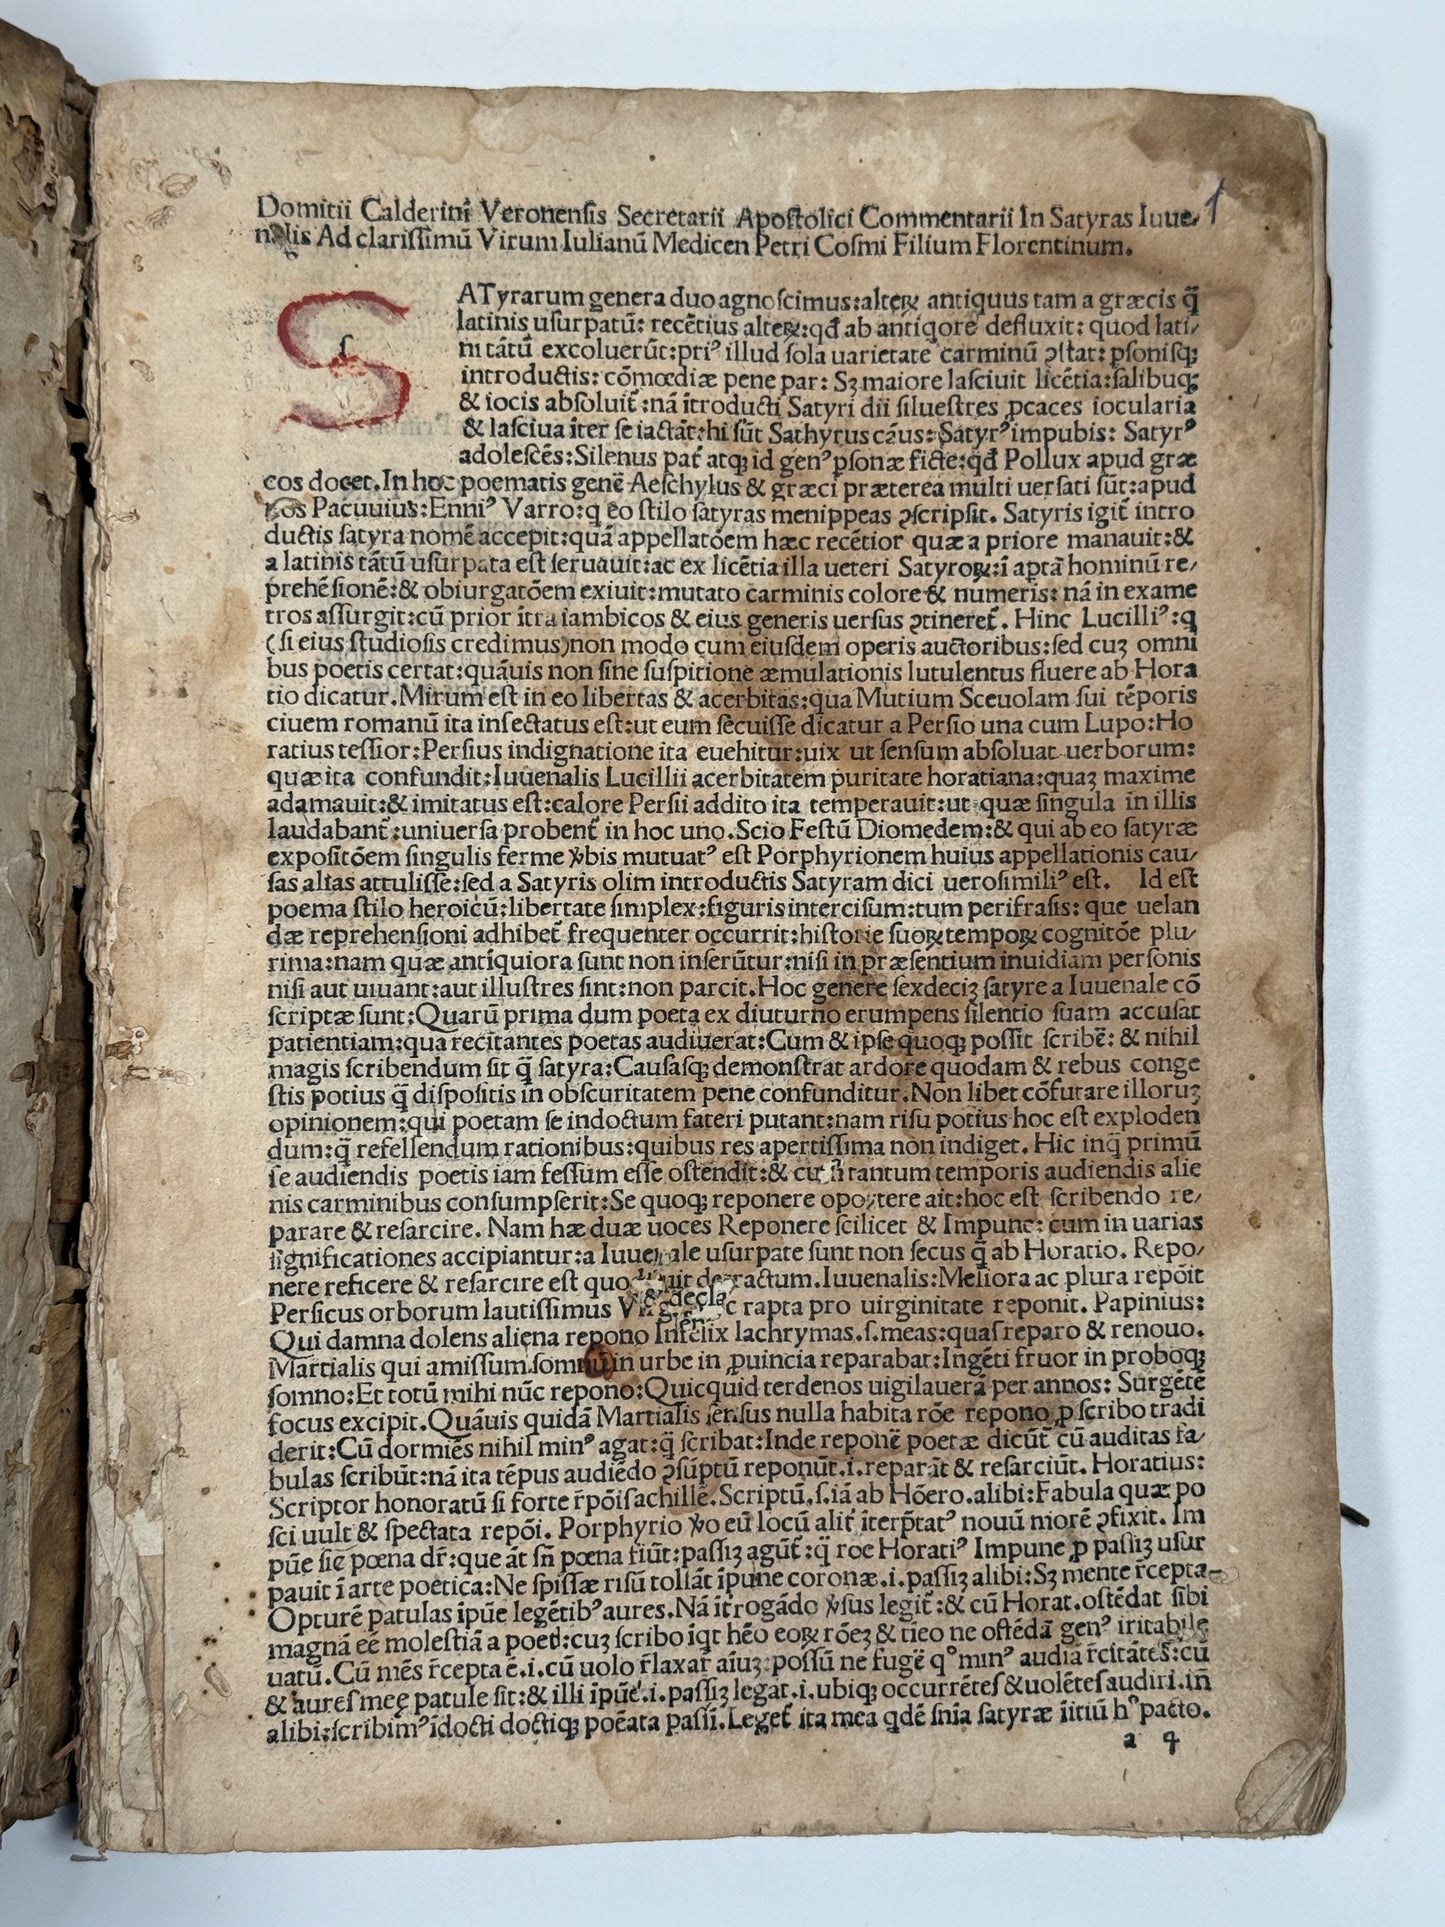 Domitii Calderini Veronensis Secretarii Apostolici Commentarii In Satyras Iuue/
nalis Ad clarissimũ Virum Iulianũ Medicen Petri Cosmi Filium Florentinum.
1
S
ſ
ATyrarum genera duo agnoſcimus:alteꝝ antiquus tam a græcis q̃
latinis uſurpatũ: recẽtius alteꝝ:qđ ab antiqore defluxit: quod lati/
ni tãtũ excoluerũt:priꝰ illud ſola uarietate carminũ ꝯſtat: ꝑſoniſqꝫ
introductis: cõmœdiæ pene par: Sꝫ maiore laſciuit licẽtia:ſalibuqꝫ
& iocis abſoluit̃:nã ĩtroducti Satyri dii ſilueſtres ꝓcaces iocularia
& laſciua ĩter ſe iactãt:hi ſũt Sathyrus cãus:Satyrꝰ impubis: Satyrꝰ
adoleſcẽs:Silenus pat̃ atqꝫ id genꝰ ꝑſonæ ficte:qđ Pollux apud græ
cos docet.In hoc poematis genẽ Aeſchylus & græci præterea multi uerſati ſũt:apud
nos Pacuuius:Enniꝰ Varro:q eo ſtilo ſatyras menippeas ꝯſcripſit. Satyris igit̃ intro
ductis ſatyra nomẽ accepit:quã appellatõem hæc recẽtior quæ a priore manauit:&
a latinis tãtũ uſurpata eſt ſeruauit:ac ex licẽtia illa ueteri Satyroꝝ:ĩ aptã hominũ re/
prehẽſionẽ:& obiurgatõem exiuit:mutato carminis colore & numeris: nã in exame
tros aſſurgit:cũ prior ĩtra iambicos & eius generis uerſus ꝯtineret̃. Hinc Lucilliꝰ:q
(ſi eius ſtudioſis credimus)non modo cum eiuſdem operis auctoribus:ſed cuꝫ omni
bus poetis certat:quãuis non ſine ſuſpitione æmulationis lutulentus fluere ab Hora
tio dicatur.Mirum eſt in eo libertas & acerbitas:qua Mutium Sceuolam ſui tẽporis
ciuem romanũ ita inſectatus eſt:ut eum ſecuiſſe dicatur a Perſio una cum Lupo:Ho
ratius teſſior:Perſius indignatione ita euehitur:uix ut ſenſum abſoluat uerborum:
quæ ita confundit:Iuuenalis Lucillii acerbitatem puritate horatiana:quaꝫ maxime
adamauit:& imitatus eſt:calore Perſii addito ita temperauit:ut quæ ſingula in illis
laudabant̃:uniuerſa probent̃ in hoc uno.Scio Feſtũ Diomedem:& qui ab eo ſatyræ
expoſitõem ſingulis ferme ꝟbis mutuatꝰ eſt Porphyrionem huius appellationis cau/
ſas alias attuliſſe:ſed a Satyris olim introductis Satyram dici ueroſimiliꝰ eſt. Id eſt
poema ſtilo heroicũ:libertate ſimplex:figuris interciſum:tum perifraſis: que uelan
dæ reprehenſioni adhibet̃ frequenter occurrit:hiſtorie ſuoꝝ tempoꝝ cognitõe plu/
rima:nam quæ antiquiora ſunt non inſerũtur:niſi in præſentium inuidiam perſonis
niſi aut uiuant:aut illuſtres ſint:non parcit.Hoc genere ſexdeciꝫ ſatyre a Iuuenale cõ
ſcriptæ ſunt:Quarũ prima dum poeta ex diuturno erumpens ſilentio ſuam accuſat
patientiam:qua recitantes poetas audiuerat:Cum & ipſe quoqꝫ poſſit ſcribẽ: & nihil
magis ſcribendum ſit q̃ ſatyra:Cauſaſqꝫ demonſtrat ardore quodam & rebus conge
ſtis potius q̃ diſpoſitis in obſcuritatem pene confunditur.Non libet cõfutare illoruꝫ
opinionem:qui poetam ſe indoctum fateri putant:nam riſu potius hoc eſt exploden
dum:q̃ refellendum rationibus:quibus res apertiſſima non indiget. Hic inq̃ primũ
ſe audiendis poetis iam feſſum eſſe oſtendit:& tantum temporis audiendis alie
nis carminibus conſumpſerit:Se quoqꝫ reponere oportere ait:hoc eſt ſcribendo re/
parare & reſarcire. Nam hæ duæ uoces Reponere ſcilicet & Impune: cum in uarias
ſignificationes accipiantur:a Iuuenale uſurpate ſunt non ſecus q̃ ab Horatio. Repo/
nere reficere & reſarcire eſt detractum.Iuuenalis:Meliora ac plura repõit
Perſicus orborum lautiſſimus rapta pro uirginitate reponit. Papinius:
Qui damna dolens aliena repono Infelix lachrymas.ſ.meas:quaſ reparo & renouo.
Martialis qui amiſſum ſomnũ in urbe in ꝓuincia reparabat:Ingẽti fruor in proboqꝫ
ſomno:Et totũ mihi nũc repono:Quicquid terdenos uigilauerã per annos: Surgẽtẽ
focus excipit.Quãuis quidã Martialis ſenſus nulla habita rõe repono ꝓ ſcribo tradi
derit:Cũ dormiẽs nihil minꝰ agat:q̃ ſcribat:Inde reponẽ poetæ dicũt cũ auditas fa/
bulas ſcribũt:nã ita tẽpus audiẽdo ꝯſũptũ reponũt.i.reparãt & reſarciũt. Horatius:
Scriptor honoratũ ſi forte r̃põiſ achillẽ.Scriptũ.ſ.iã ab Hõero.alibi:Fabula quæ po
ſci uult & ſpectata repõi. Porphyrio ꝟo eũ locũ alit̃ ĩterp̃tatꝰ nouũ morẽ ꝯfixit. Im
pũe ſiẽ pœna dr̃:que ãt ſñ pœna fiũt:paſſiꝫ agũt̃:q̃ roe Horatiꝰ Impune ꝓ paſſiꝫ uſur
pauit ĩ arte poetica:Ne ſpiſſæ riſũ tollãt ĩpune coronæ.i.paſſiꝫ alibi:Sꝫ mente r̃cepta
Opturẽ patulas ĩpũe legẽtibꝰ aures.Nã ĩt̃rogãdo ꝟſus legit̃:& cũ Horat.oſtẽdat ſibi
magnã eẽ moleſtiã a poet̃:cuꝫ ſcribo ĩqt hẽo eoꝝ rõeꝫ & tĩeo ne oſtẽdã genꝰ iritabile
uatũ.Cũ mẽs r̃cepta ẽ.i.cũ uolo r̃laxar̃ aĩuꝫ:poſſũ ne fugẽ qͦ minꝰ audiã r̃citãtes:cũ
& aureſ meę patule ſit:& illi ĩpũe.i.paſſiꝫ legãt.i.ubiqꝫ occurrẽteſ &uolẽteſ audiri.iñ
alibi:ſcribimꝰ ĩdocti doctiqꝫ poẽata paſſĩ.Leget̃ ita mea qdẽ ſnĩa ſatyræ ĩitiũ hͦ pacto.
a 4